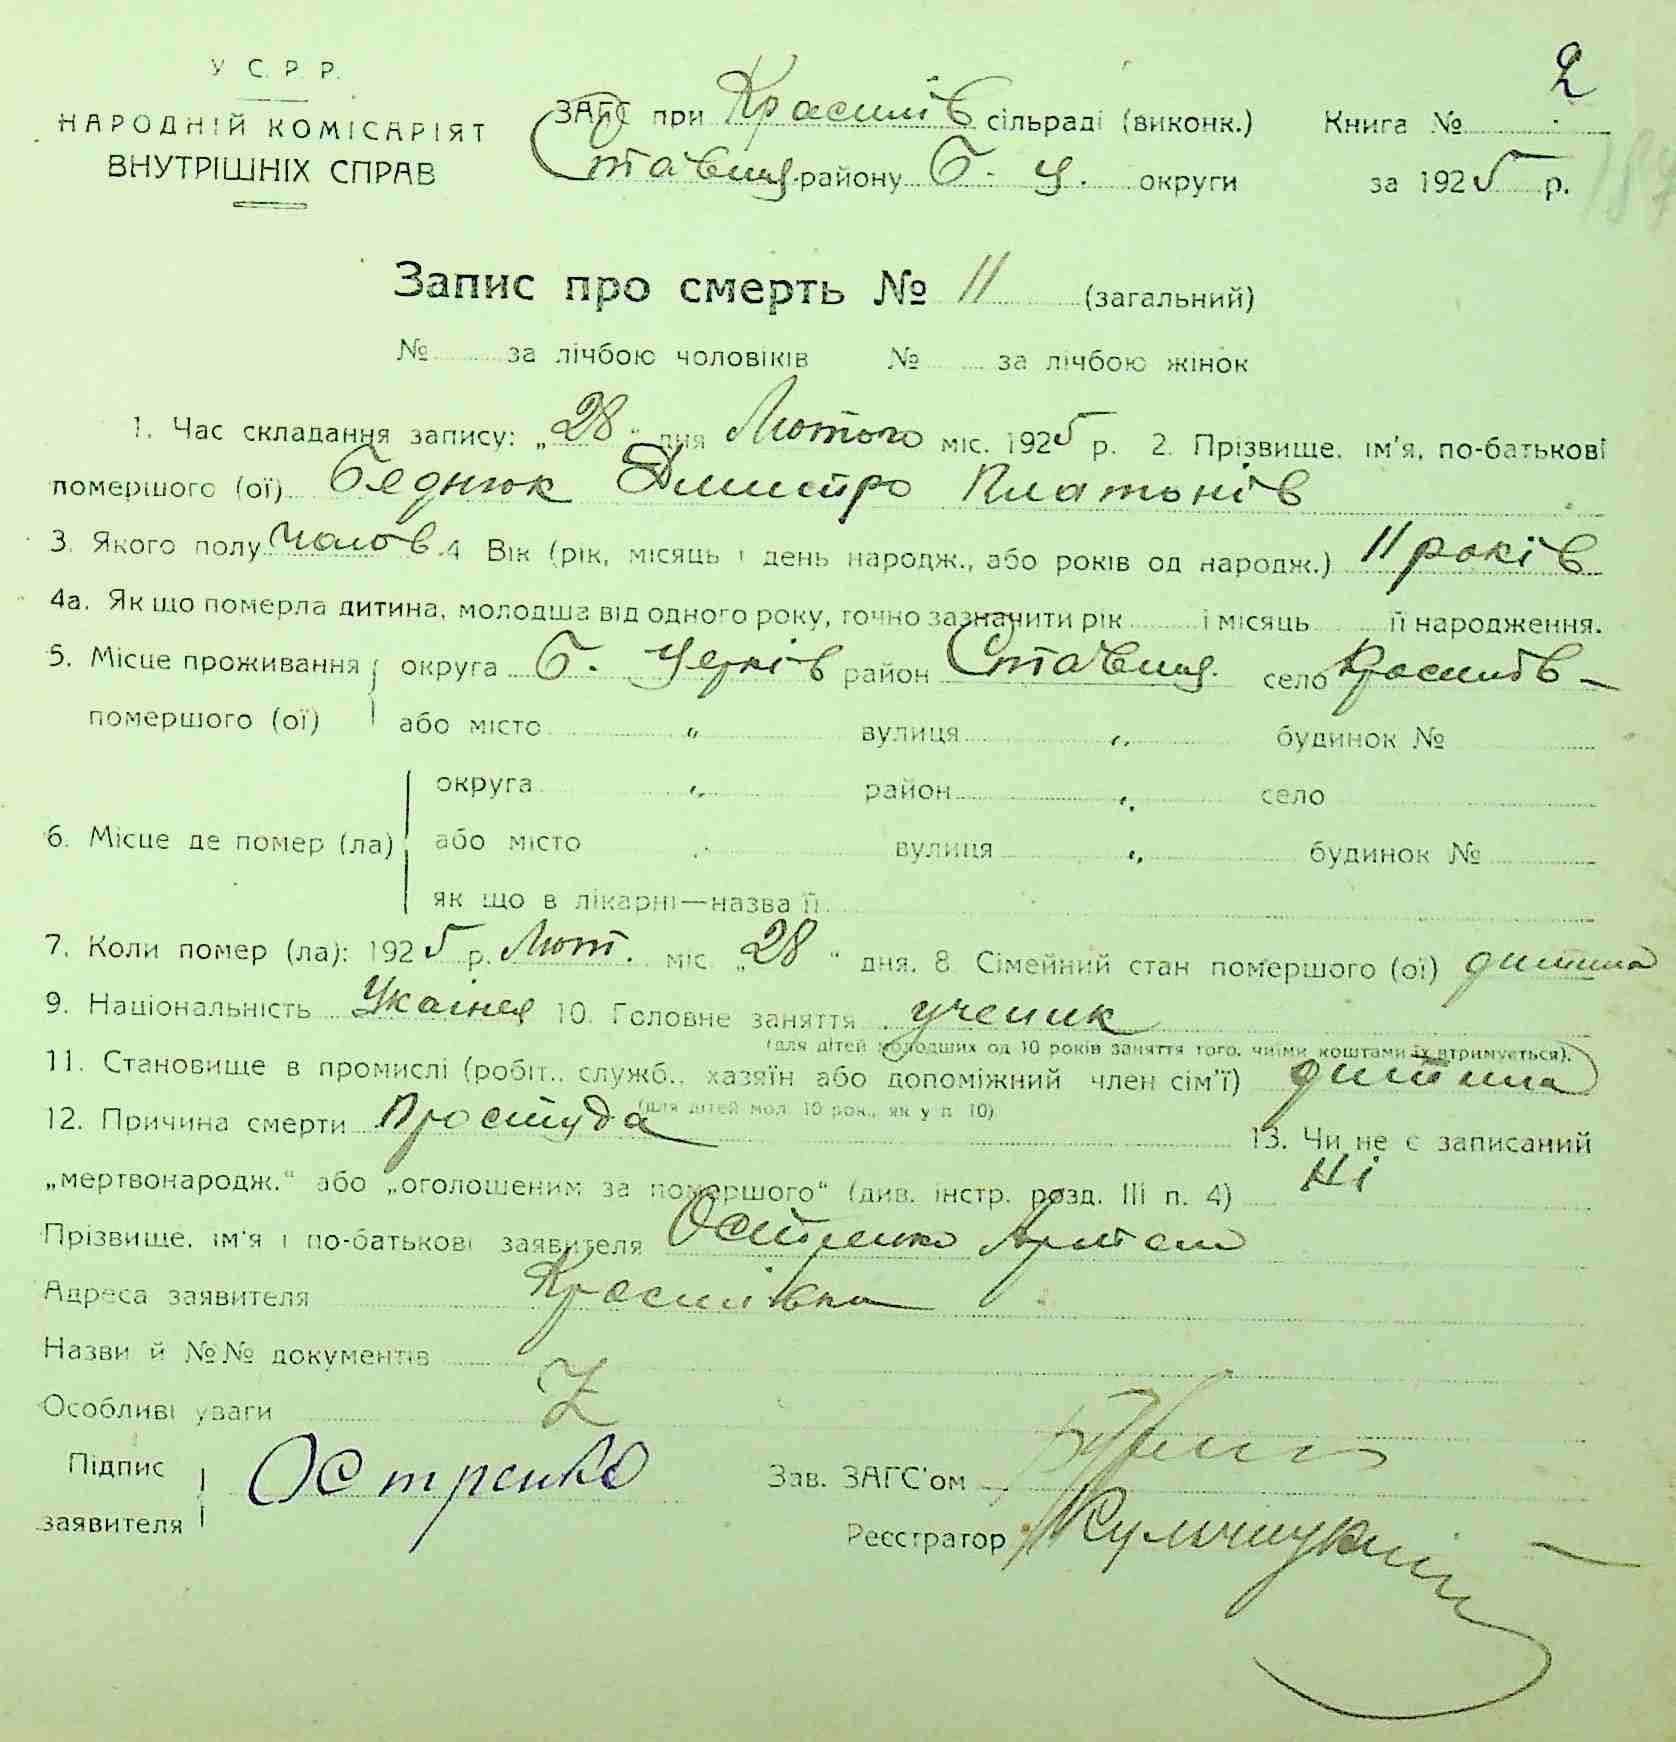 У С. Р. Р.
НАРОДНІЙ КОМІСАРІЯТ
ВНУТРІШНІХ СПРАВ
ЗАГС при Красилів сільраді (виконк.) Книга № 2
Ставищ. району Б. Ц. округи за 1925 р.
Запис про смерть № 11 (загальний)
№ за лічбою чоловіків № за лічбою жінок
1. Час складання запису: „28“ дня Лютого міс. 1925 р. 2. Прізвище, ім'я, по-батькові
помершого (ої) Беднюк Дмитро Платонів
3. Якого полу чолов. 4 Вік (рік, місяць і день народж., або років од народж.) 11 років
4а. Як що померла дитина, молодша від одного року, точно зазначити рік і місяць її народження.
5. Місце проживання округа Б. Церків район Ставищ. село Красилів
помершого (ої) або місто " вулиця " будинок №
округа " район " село
6. Місце де помер (ла) або місто " вулиця " будинок №
як що в лікарні—назва її
7. Коли помер (ла): 1925 р. Лют. міс. „28“ дня. 8. Сімейний стан помершого (ої) дитина
9. Національність Украінец 10. Головне заняття ученик
(для дітей молодших од 10 років заняття того, чиїми коштами їх втримується).
11. Становище в промислі (робіт., служб., хазяїн або допоміжний член сім'ї) дитина
(для дітей мол. 10 рок., як у п. 10)
12. Причина смерти Простуда 13. Чи не є записаний
„мертвонародж.“ або „оголошеним за помершого“ (див. інстр. розд. III п. 4) Ні
Прізвище, ім'я і по-батькові заявителя Остренко Артем
Адреса заявителя Красилівка
Назви й №№ документів
Особливі уваги Z
Підпис заявителя Остренко Зав. ЗАГС'ом
Реєстратор